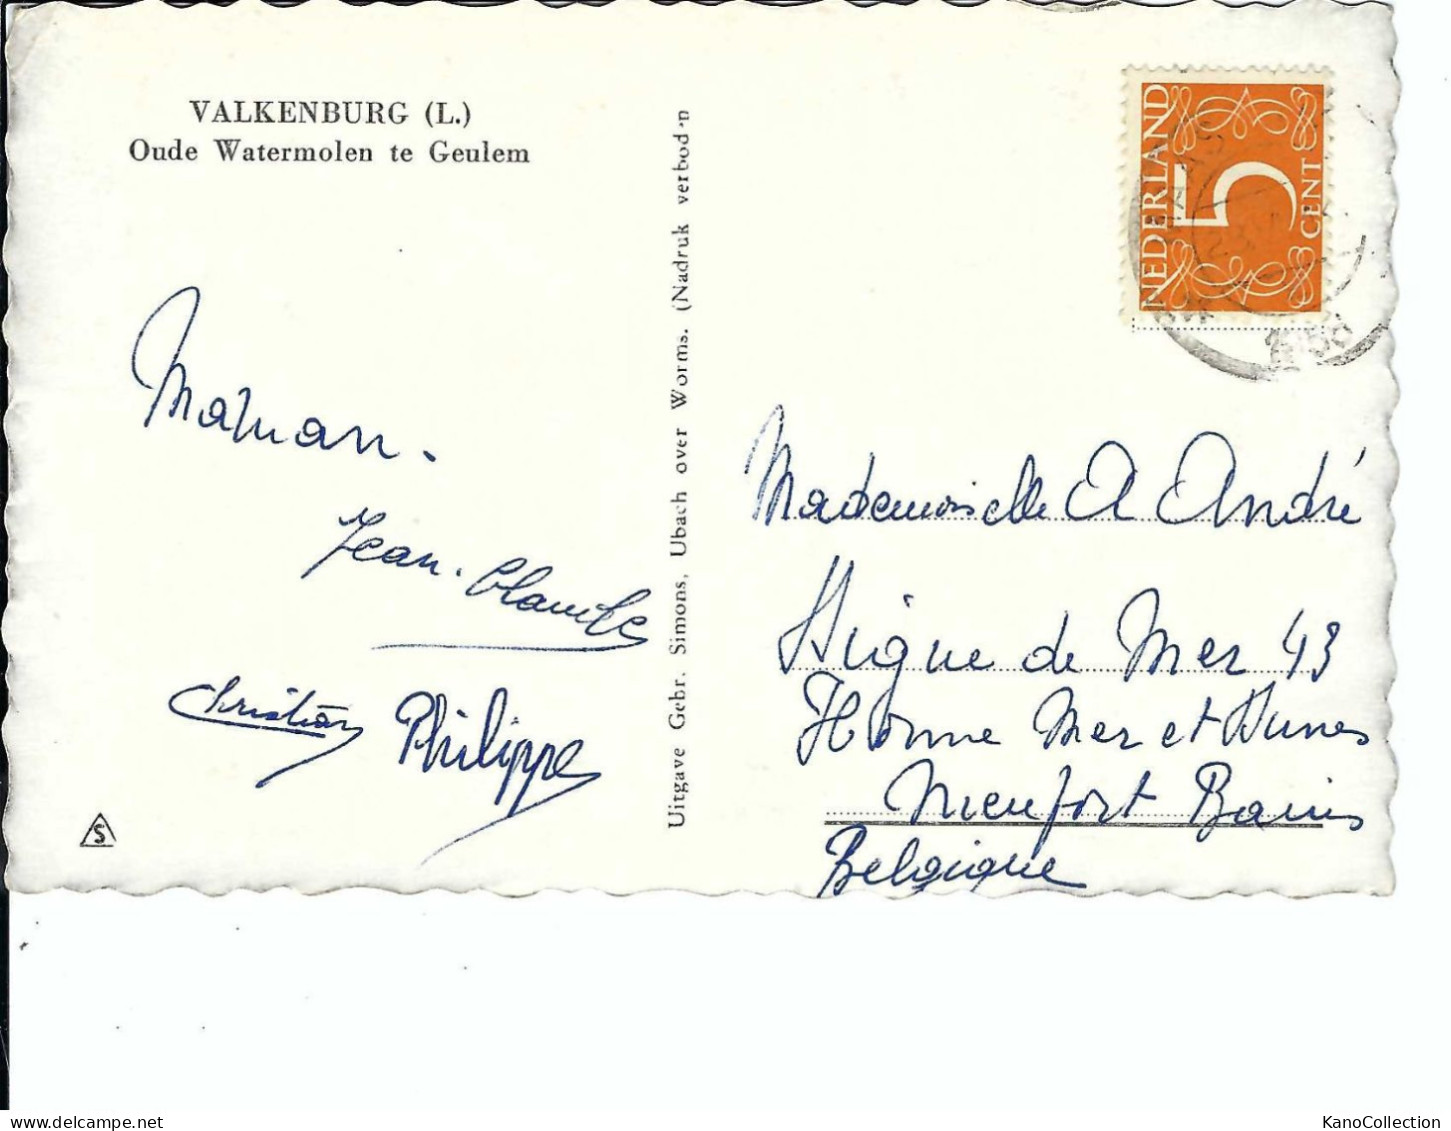 VALKENBURG (L.)
Oude Watermolen te Geulem
Maman.
Jean-Claude
Christian
Philippe
S
Uitgave Gebr. Simons, Ubach over Worms. (Nadruk verbod'n
NEDERLAND
5
CENT
Mademoiselle A André
Digue de Mer 43
Home Mer et Dunes
Nieuport Bains
Belgique
www.delcampe.net
KanoCollection